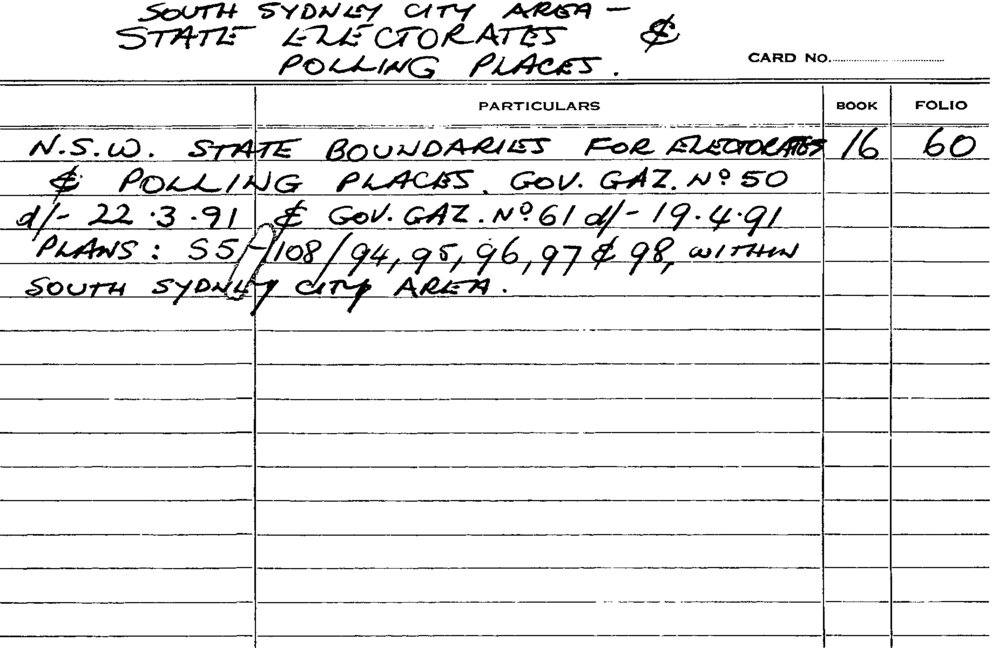 SOUTH SYDNEY CITY AREA -
STATE ELECTORATES &
POLLING PLACES.
CARD NO.
PARTICULARS BOOK FOLIO
N.S.W. STATE BOUNDARIES FOR ELECTORATES 16 60
& POLLING PLACES. GOV. GAZ. Nº 50
d/- 22.3.91 & GOV. GAZ. Nº 61 d/- 19.4.91
PLANS: S5-/108/94, 95, 96, 97 & 98, WITHIN
SOUTH SYDNEY CITY AREA.